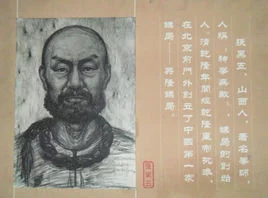 張黑五，山西人，著名拳師，
人稱‘神拳無敵’，鏢局的創始
人。清乾隆年間經乾隆皇帝準，
在北京前門外創立了中國第一家
鏢局——興隆鏢局。
張黑五